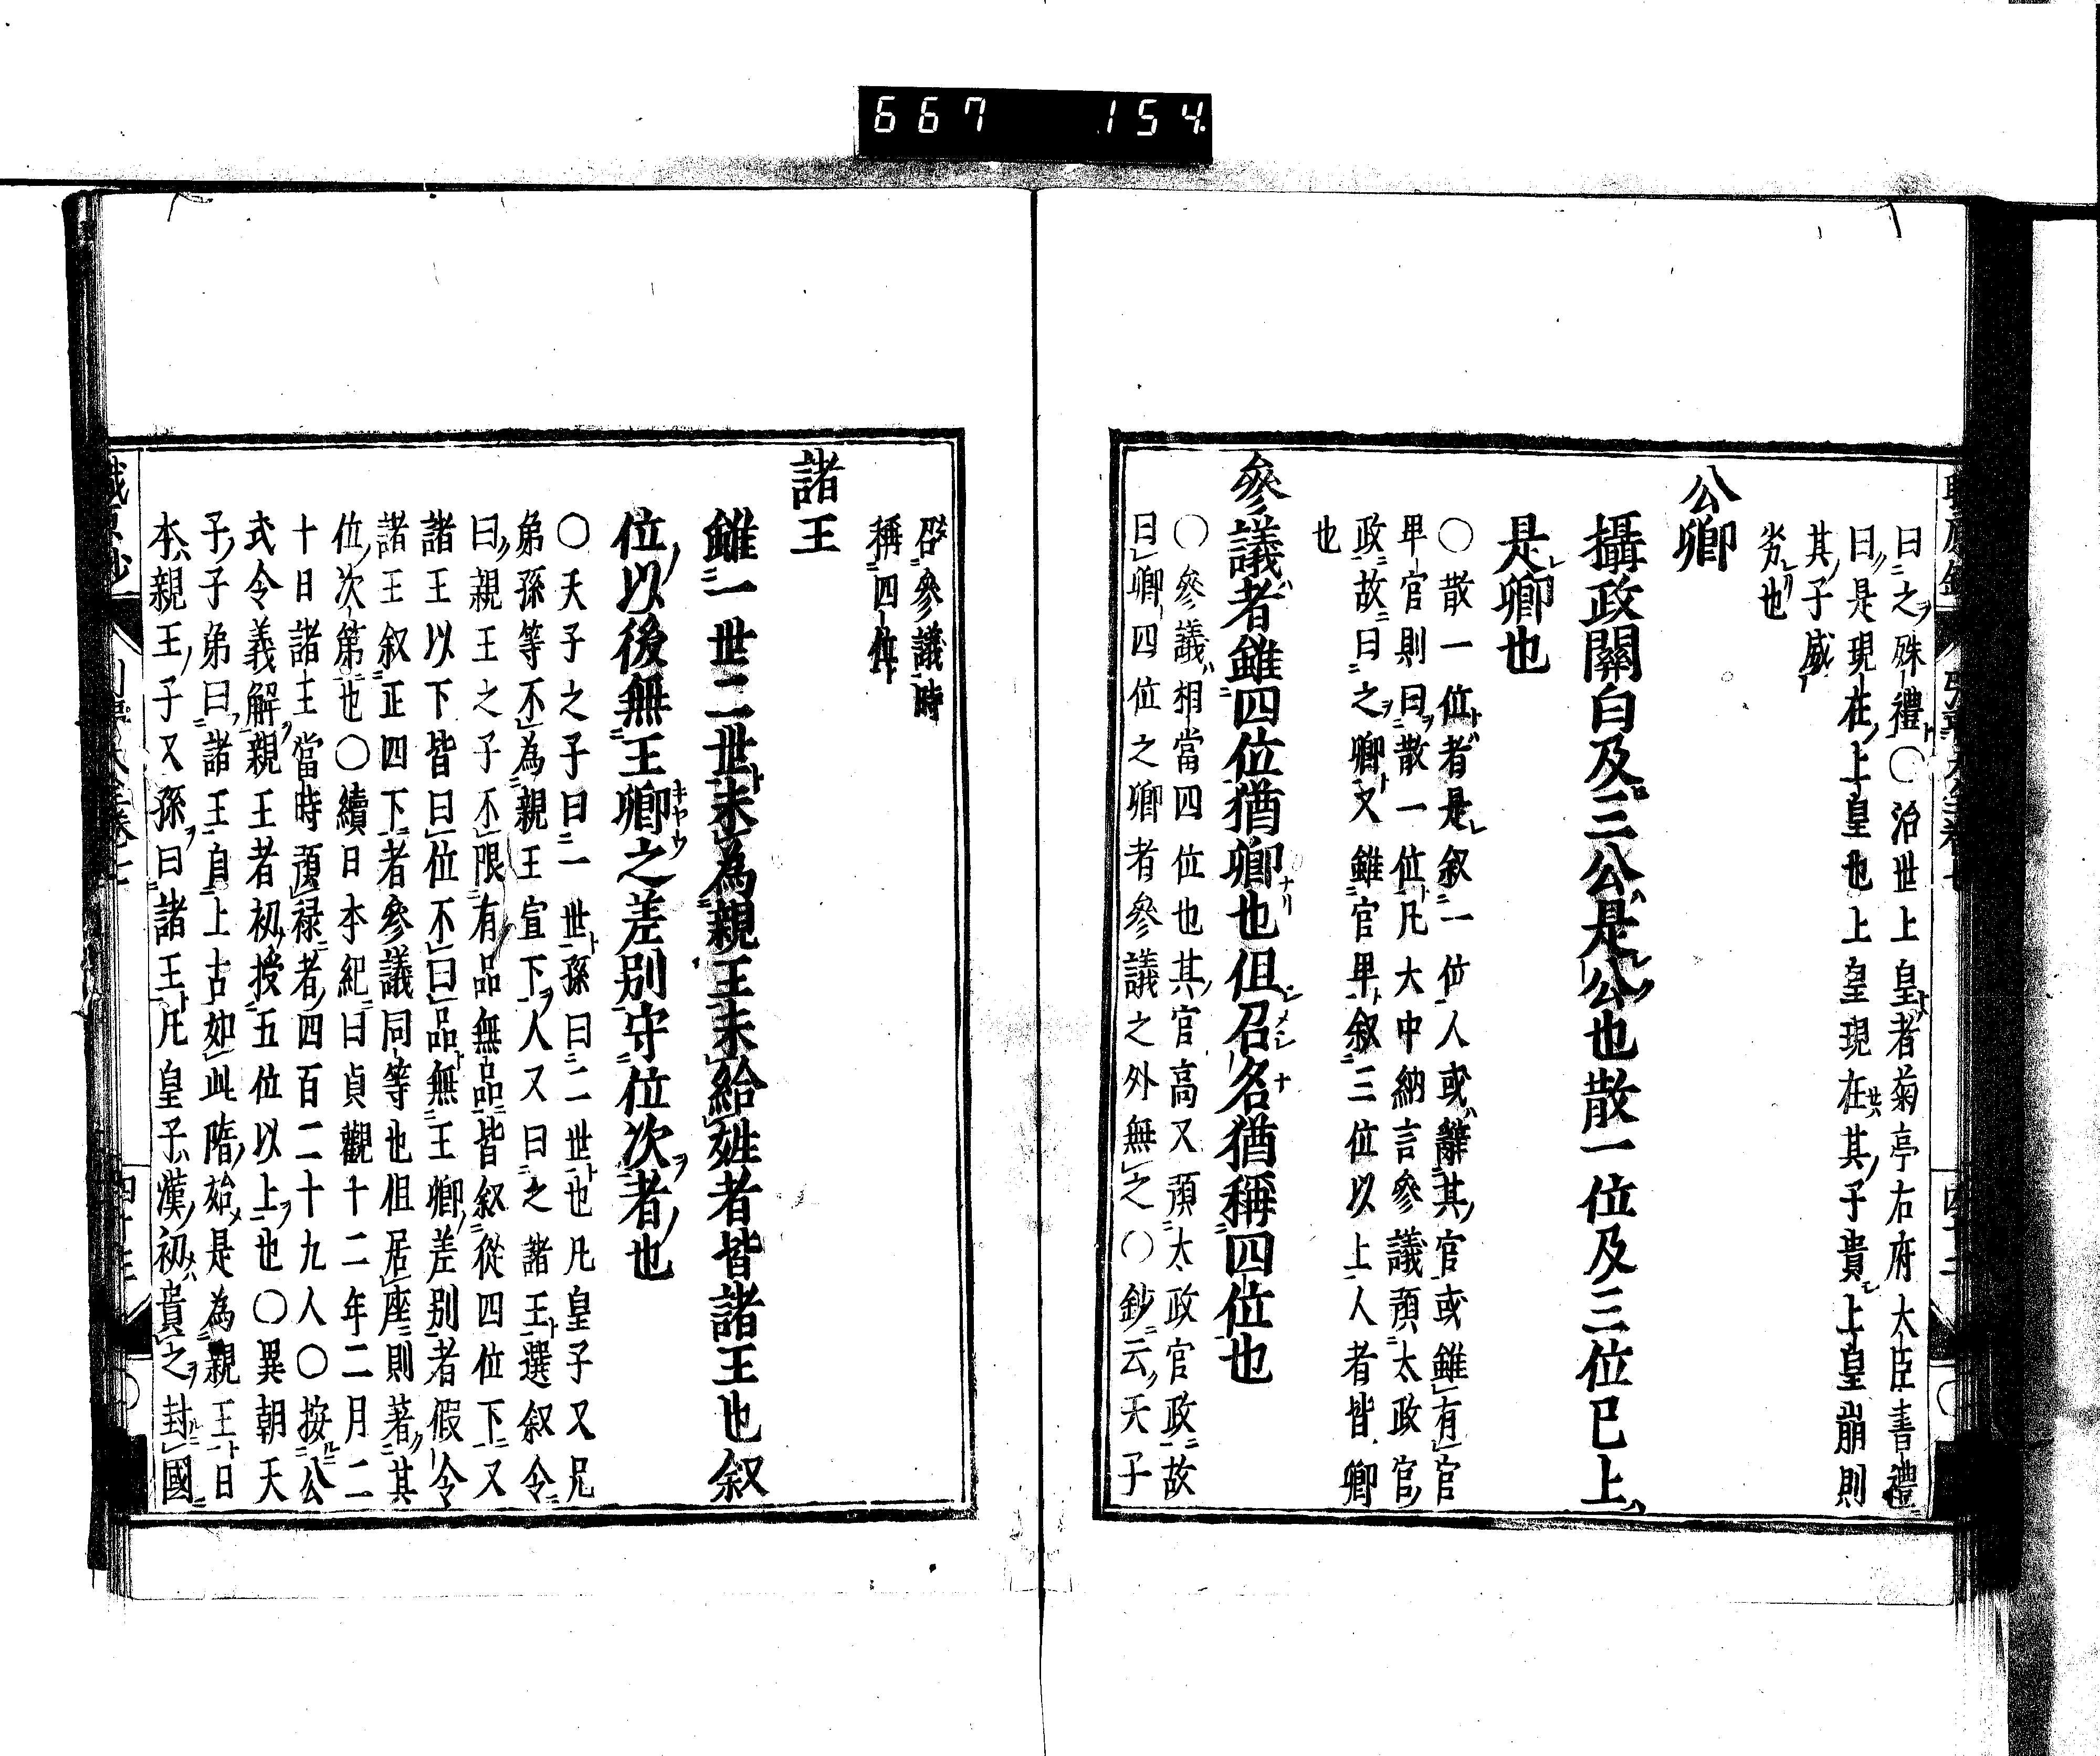 667 154
曰之殊禮○治世上皇者菊亭右府大臣書禮
曰是現在上皇也上皇現在其子貴上皇崩則
其子威
劣也
公卿
攝政關白及三公是公也散一位及三位已上
是卿也
○散一位者是叙一位人或辭其官或雖有官
卑官則曰散一位凡大中納言參議預太政官
政故曰之卿又雖官卑叙三位以上人者皆卿
也
參議者雖四位猶卿也但召名猶稱四位也
○參議相當四位也其官高又預太政官政故
曰卿四位之卿者參議之外無之○鈔云天子
召參議時
稱四位
諸王
雖一世二世未為親王未給姓者皆諸王也叙
位以後無王卿之差別守位次者也
○天子之子曰一世孫曰二世也凡皇子又兄
弟孫等不為親王宣下人又曰之諸王選叙令
曰親王之子不限有品無品皆叙從四位下又
諸王以下皆曰位不曰品無王卿差別者假令
諸王叙正四下者參議同等也但居座則著其
位次第也○續日本紀曰貞觀十二年二月二
十日諸王當時預祿者四百二十九人○按公
式令義解親王者初授五位以上也○異朝天
子子弟曰諸王自上古如此隋始是為親王日
本親王子又孫曰諸王凡皇子漢初貴之封國